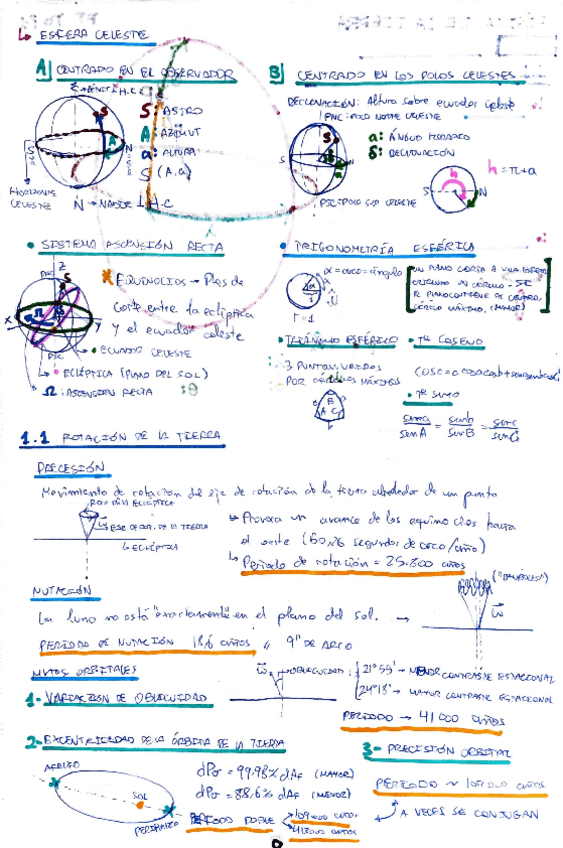 ↳ ESFERA CELESTE
A] CENTRADO EN EL OBSERVADOR
H.C
S: ASTRO
A: AZIMUT
a: ALTURA
S (A,a)
S
A
N
HORIZONTE
CELESTE
N → NADIR ⊥ H.C
B] CENTRADO EN LOS POLOS CELESTES
DECLINACIÓN: Altura sobre ecuador celeste
PNC: POLO NORTE CELESTE
a: ÁNGULO HORARIO
δ: DECLINACIÓN
h = π+a
PSC: POLO SUR CELESTE
• SISTEMA ASCENSIÓN RECTA
* EQUINOCIOS → Ptos de
corte entre la eclíptica
y el ecuador celeste
• ECUADOR CELESTE
ECLÍPTICA (PLANO DEL SOL)
Ω: ASCENSION RECTA
• TRIGONOMETRÍA ESFÉRICA
α = arco = ángulo
r = 1
UN PLANO CORTA A UNA ESFERA
CÍRCULO MÁXIMO. (MAYOR)
• TRIÁNGULO ESFÉRICO
3 PUNTOS UNIDOS
POR CÍRCULOS MÁXIMOS
• Tª COSENO
cosc = cosa cosb + sena senb cosC
• Tª SENO
sena/senA = senb/senB = senc/senC
1.1 ROTACIÓN DE LA TIERRA
PRECESIÓN
Movimiento de rotación del eje de rotación de la tierra alrededor de un punto
EJE DE ROT. DE LA TIERRA
↳ ECLÍPTICA
↳ Provoca un avance de los equinocios hacia
el oeste (50,26 segundos de arco/año)
↳ Periodo de rotación = 25.800 años
NUTACIÓN
La luna no está "exactamente" en el plano del sol. →
PERIODO DE NUTACIÓN 18,6 años, 9" DE ARCO
MVTOS ORBITALES
1- VARIACIÓN DE OBLICUIDAD
OBLICUIDAD
21°55' → MENOR CONTRASTE ESTACIONAL
24°18' → MAYOR CONTRASTE ESTACIONAL
PERIODO → 41000 años
2- EXCENTRICIDAD DE LA ÓRBITA DE LA TIERRA
AFELIO
SOL
PERIHELIO
(MAYOR)
(MENOR)
PERIODO DOBLE
109000 años
413000 años
3- PRECESIÓN ORBITAL
A VECES SE CONJUGAN